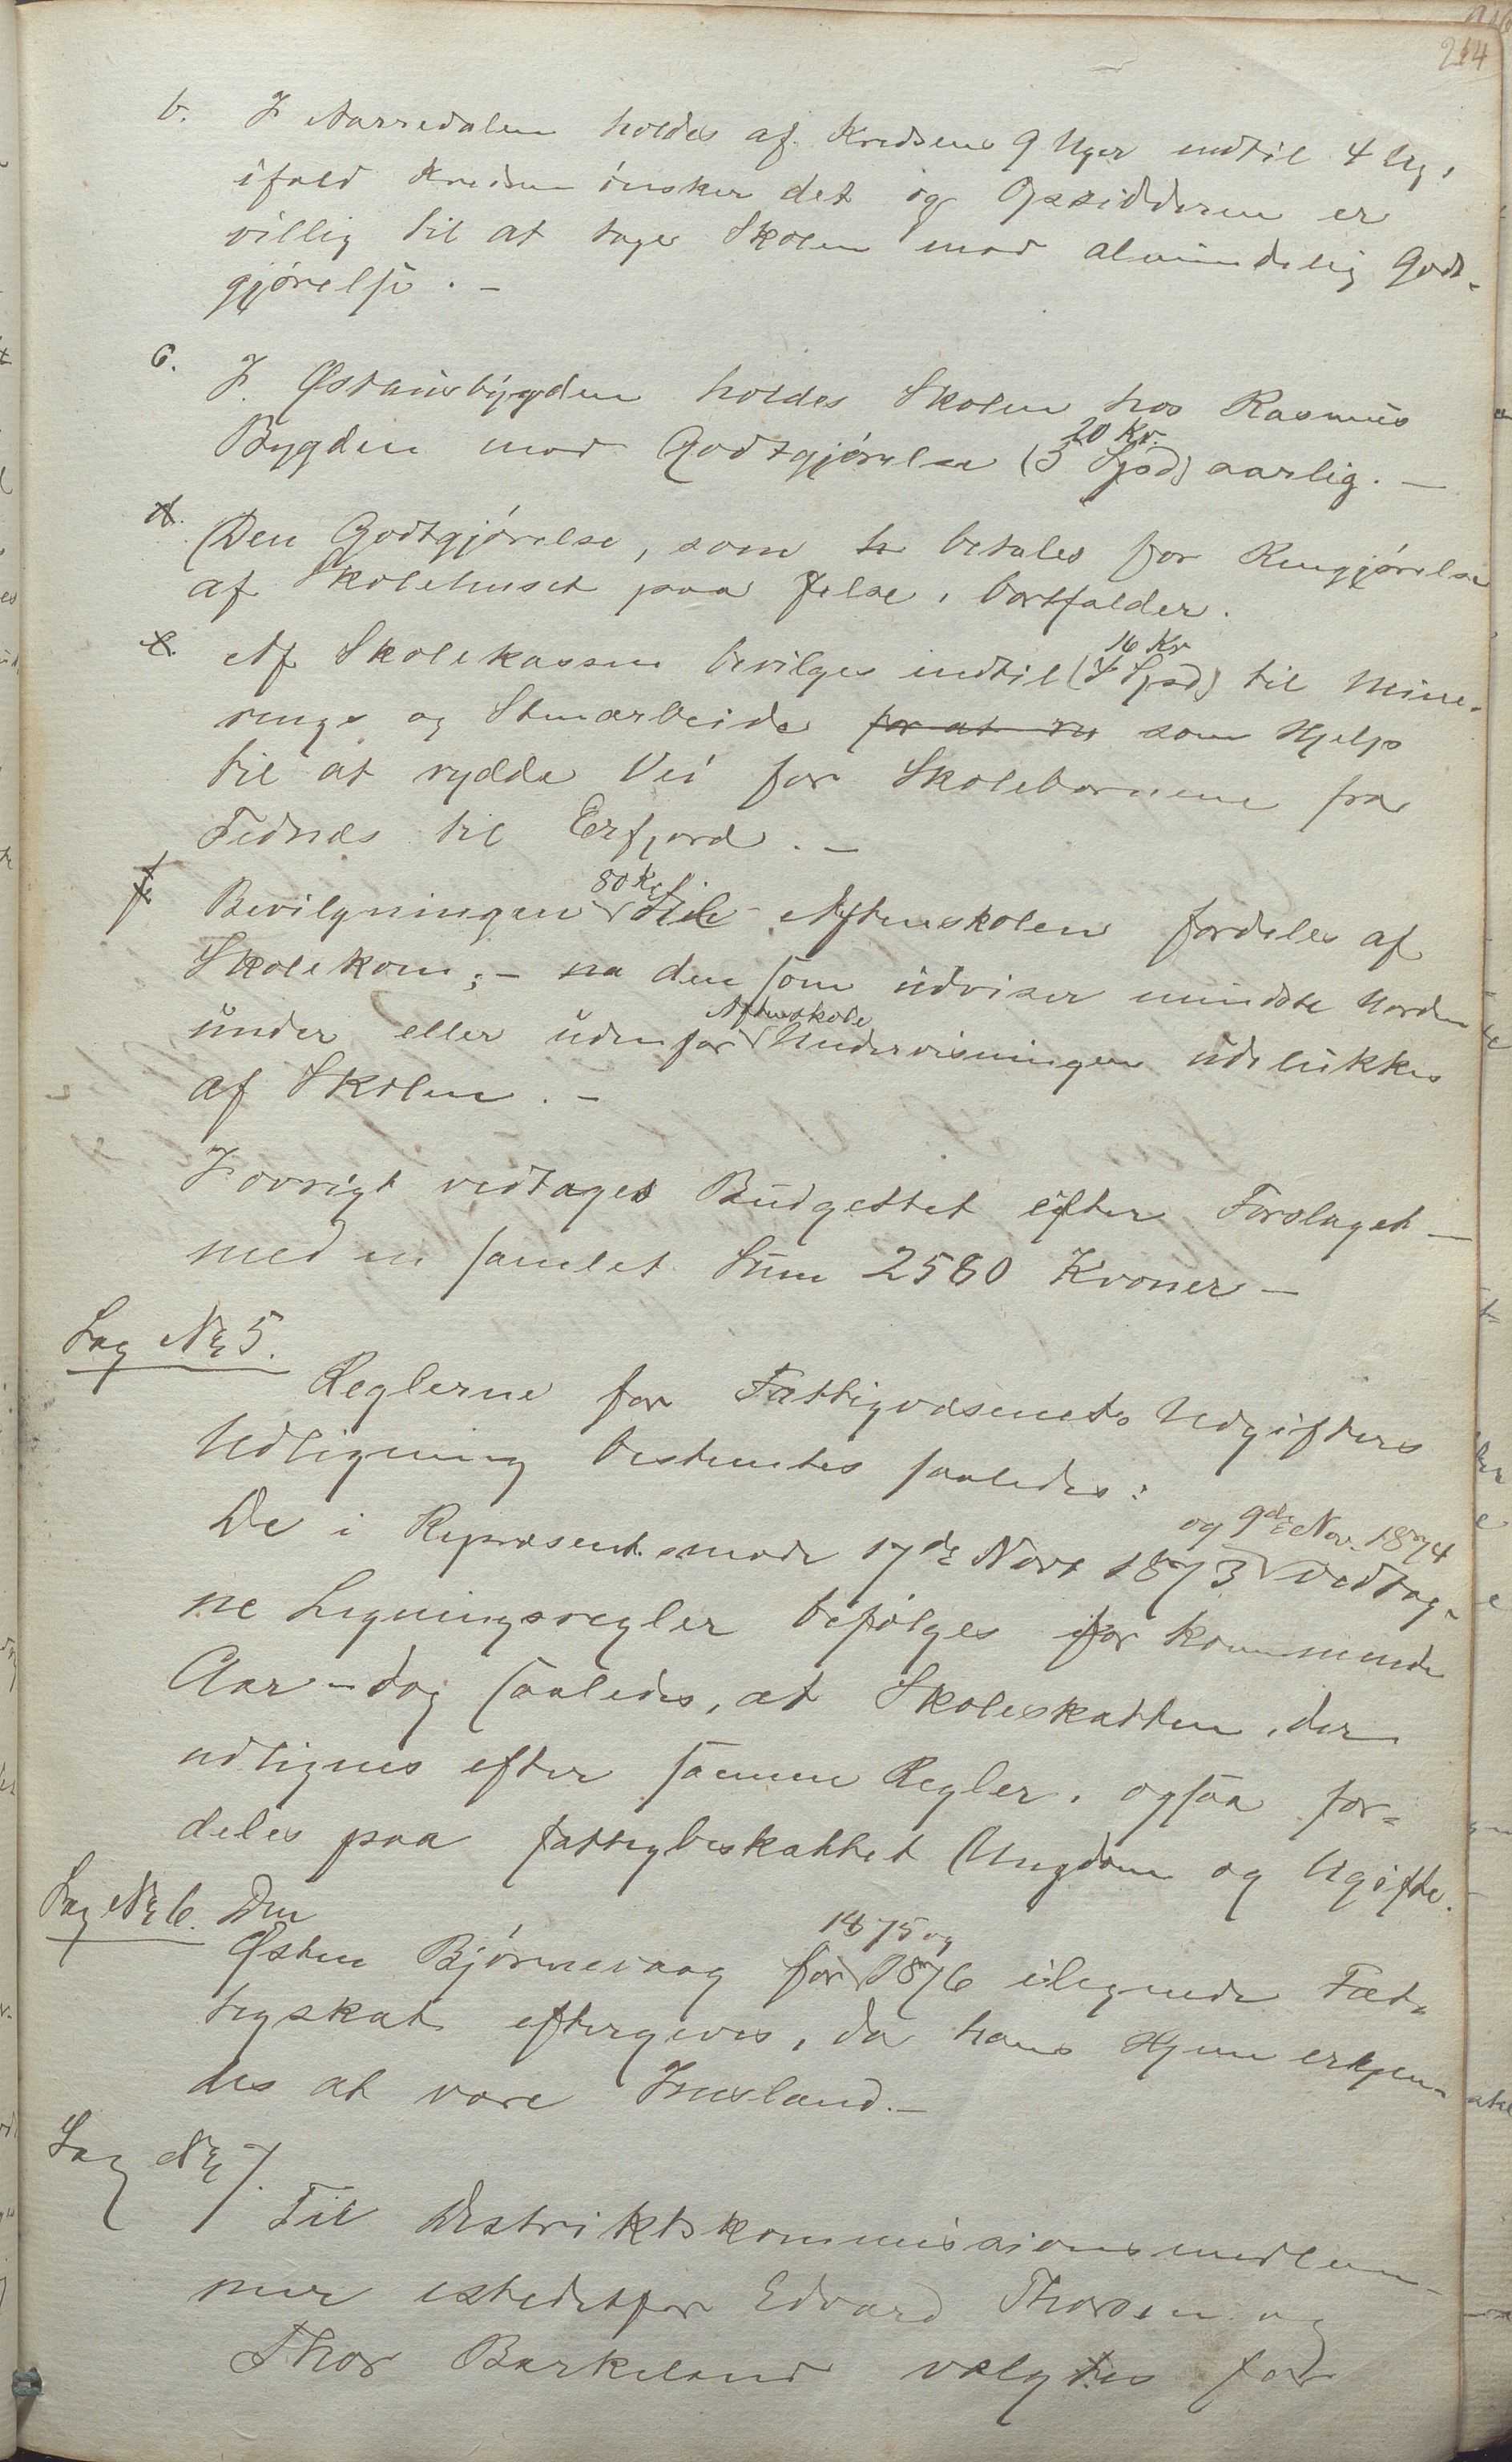 214
b. I Aarsedalen holdes af Kredsens 9 Uger indtil 4 Ug,
ifald Kredsen ønsker det og Opsidderen er
villig til at tage Skolen mod almindelig Godt-
gjørelse. -
c. I Østenbygden holdes Skolen hos Rasmus
20 Kr.
Bygden mod Godtgjørelse (5 Spd) aarlig. -
d. Den Godtgjørelse, som betales for Rengjørelse
af Skolehuset paa Jelse, bortfalder.
16 Kr
e. Af Skolekassen bevilges indtil (4 Spd) til Mine-
rings og Stenarbeide for at ry som Hjelp
til at rydde Vei for Skolebørnene fra
Tednes til Erfjord. -
80 Kr
f Bevilgningen til Aftenskolen fordeles af
Skolekom; - den som udviser mindste Uorden
Aftenskole
under eller udenfor Undervisningen udelukkes
af Skolen. -
I øvrigt vedtages Budgettet efter Forslaget -
med en samlet Sum 2580 Kroner -
Sag No 5.
Reglerne for Fattigvæsenets Udgifters
Udligning bestemtes saaledes:
og 9de Nov. 1874
De i Repræsentsmøde 17de Novr 1873 vedtag-
ne Ligningsregler befølges for kommende
Aar - dog saaledes, at Skoleskatten, der
udlignes efter samme Regler, ogsaa for-
deles paa fattigbeskattet Ungdom og Ugifte.
Sag No 6. Den
1875 og
Østen Bjørnevaag for 1876 ilignede Fat-
tigskat eftergives, da hans Hjem erkjen-
des at være Imsland. -
Sag No 7.
Til Distriktskommissionsmedlem-
mer istedetfor Edvard Thorsen og
Thor Barkeland valgtes for